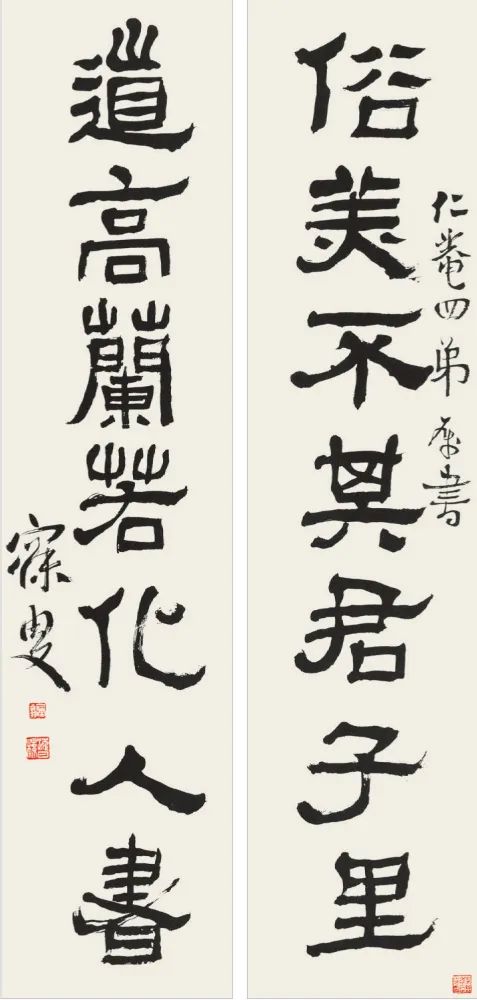 俗美不其君子里
仁菴四弟屬書
道高蘭若化人書
寐叟